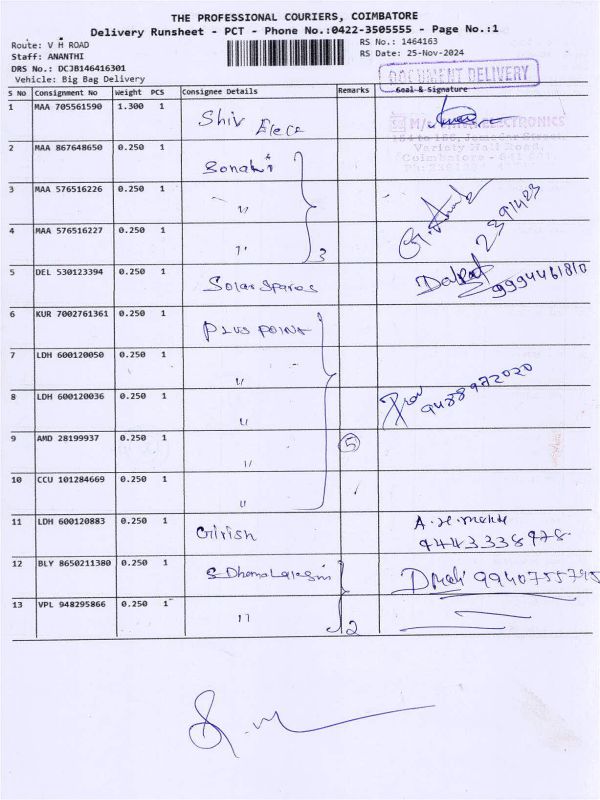 THE PROFESSIONAL COURIERS, COIMBATORE
Delivery Runsheet - PCT - Phone No.:0422-3505555 - Page No.:1
Route: V H ROAD
RS No.: 1464163
Staff: ANANTHI
RS Date: 25-Nov-2024
DRS No.: DCJB146416301
Vehicle: Big Bag Delivery
DOCUMENT DELIVERY
S No Consignment No Weight PCS Consignee Details Remarks Seal & Signature
1 MAA 705561590 1.300 1 Shiv Elecs
ELECTRONICS
Variety Hall Road,
Coimbatore - 641 001.
2 MAA 867648650 0.250 1 Sonaki
3 MAA 576516226 0.250 1 "
4 MAA 576516227 0.250 1 " 3
2391423
5 DEL 530123394 0.250 1 Solar Spares Dalpat 9994461810
6 KUR 7002761361 0.250 1 PLUS POINT
7 LDH 600120050 0.250 1 "
8 LDH 600120036 0.250 1 " 9488972020
9 AMD 28199937 0.250 1 " 5
10 CCU 101284669 0.250 1 "
11 LDH 600120883 0.250 1 Girish
9443338978
12 BLY 8650211380 0.250 1 S Dhanalaksmi 9940755795
13 VPL 948295866 0.250 1 " 2